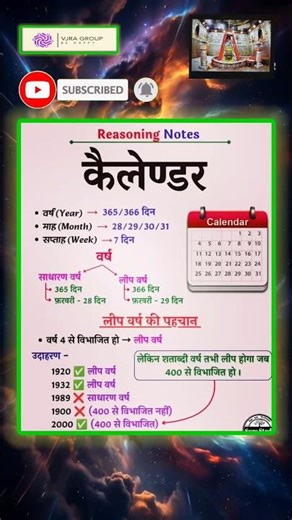 VJRA GROUP
BE HAPPY
SUBSCRIBED
Reasoning Notes
कैलेण्डर
• वर्ष (Year) → 365/366 दिन
• माह (Month) → 28/29/30/31
• सप्ताह (Week) → 7 दिन
Calendar
1 2 3
4 5 6 7 8 9 10
11 12 13 14 15 16 17
18 19 20 21 22 23 24
25 26 27 28 29 30 31
वर्ष
साधारण वर्ष
लीप वर्ष
365 दिन
366 दिन
फ़रवरी - 28 दिन
फ़रवरी - 29 दिन
लीप वर्ष की पहचान
• वर्ष 4 से विभाजित हो → लीप वर्ष
उदाहरण -
लेकिन शताब्दी वर्ष तभी लीप होगा जब
400 से विभाजित हो।
1920 ✅ लीप वर्ष
1932 ✅ लीप वर्ष
1989 ❌ साधारण वर्ष
1900 ❌ (400 से विभाजित नहीं)
2000 ✅ (400 से विभाजित)